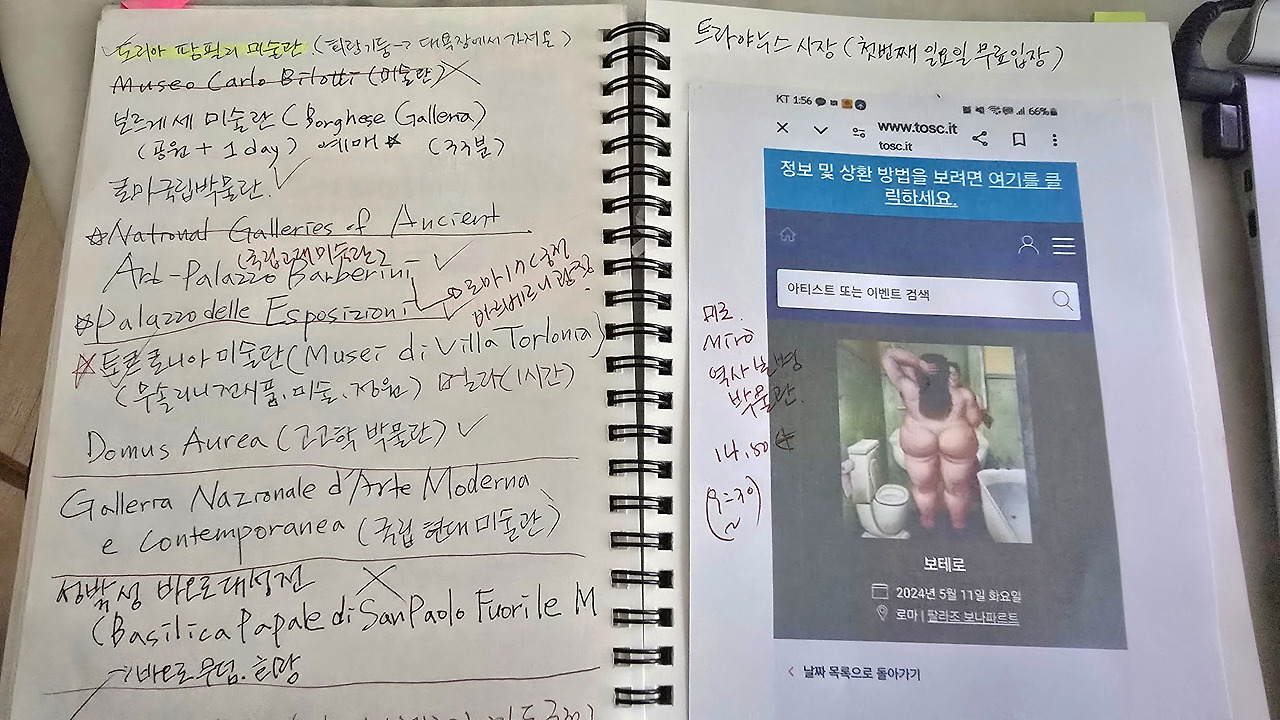 도리아 팜필리 미술관 (회랑기둥→ 대욕장에서 가져옴)
Museo Carlo Bilotti (미술관)
보르게세 미술관 (Borghese Galleria)
(공원 + 1 day) 예매
로마국립박물관.
National Galleries of Ancient
(국립고대미술관)
Art-Palazzo Barberini
Palazzo delle Esposizioni
토를로니아 미술관 (Musei di Villa Torlonia)
(무솔리니전시품, 미술, 정원) 멀다(1시간)
Domus Aurea (고고학 박물관)
Galleria Nazionale d'Arte Moderna
e Contemporanea (국립 현대 미술관)
성밖 성 바오로대성전
(Basilica Papale di San Paolo Fuori le M
→바오로무덤.
트라야누스 시장 (첫번째 일요일 무료입장)
KT 1:56
66%
www.tosc.it
tosc.it
정보 및 상환 방법을 보려면 여기를 클
릭하세요.
아티스트 또는 이벤트 검색
미로.
Miró
역사
박물관.
14.50
(9:30)
보테로
2024년 5월 11일 화요일
로마 | 팔라조 보나파르트
날짜 목록으로 돌아가기